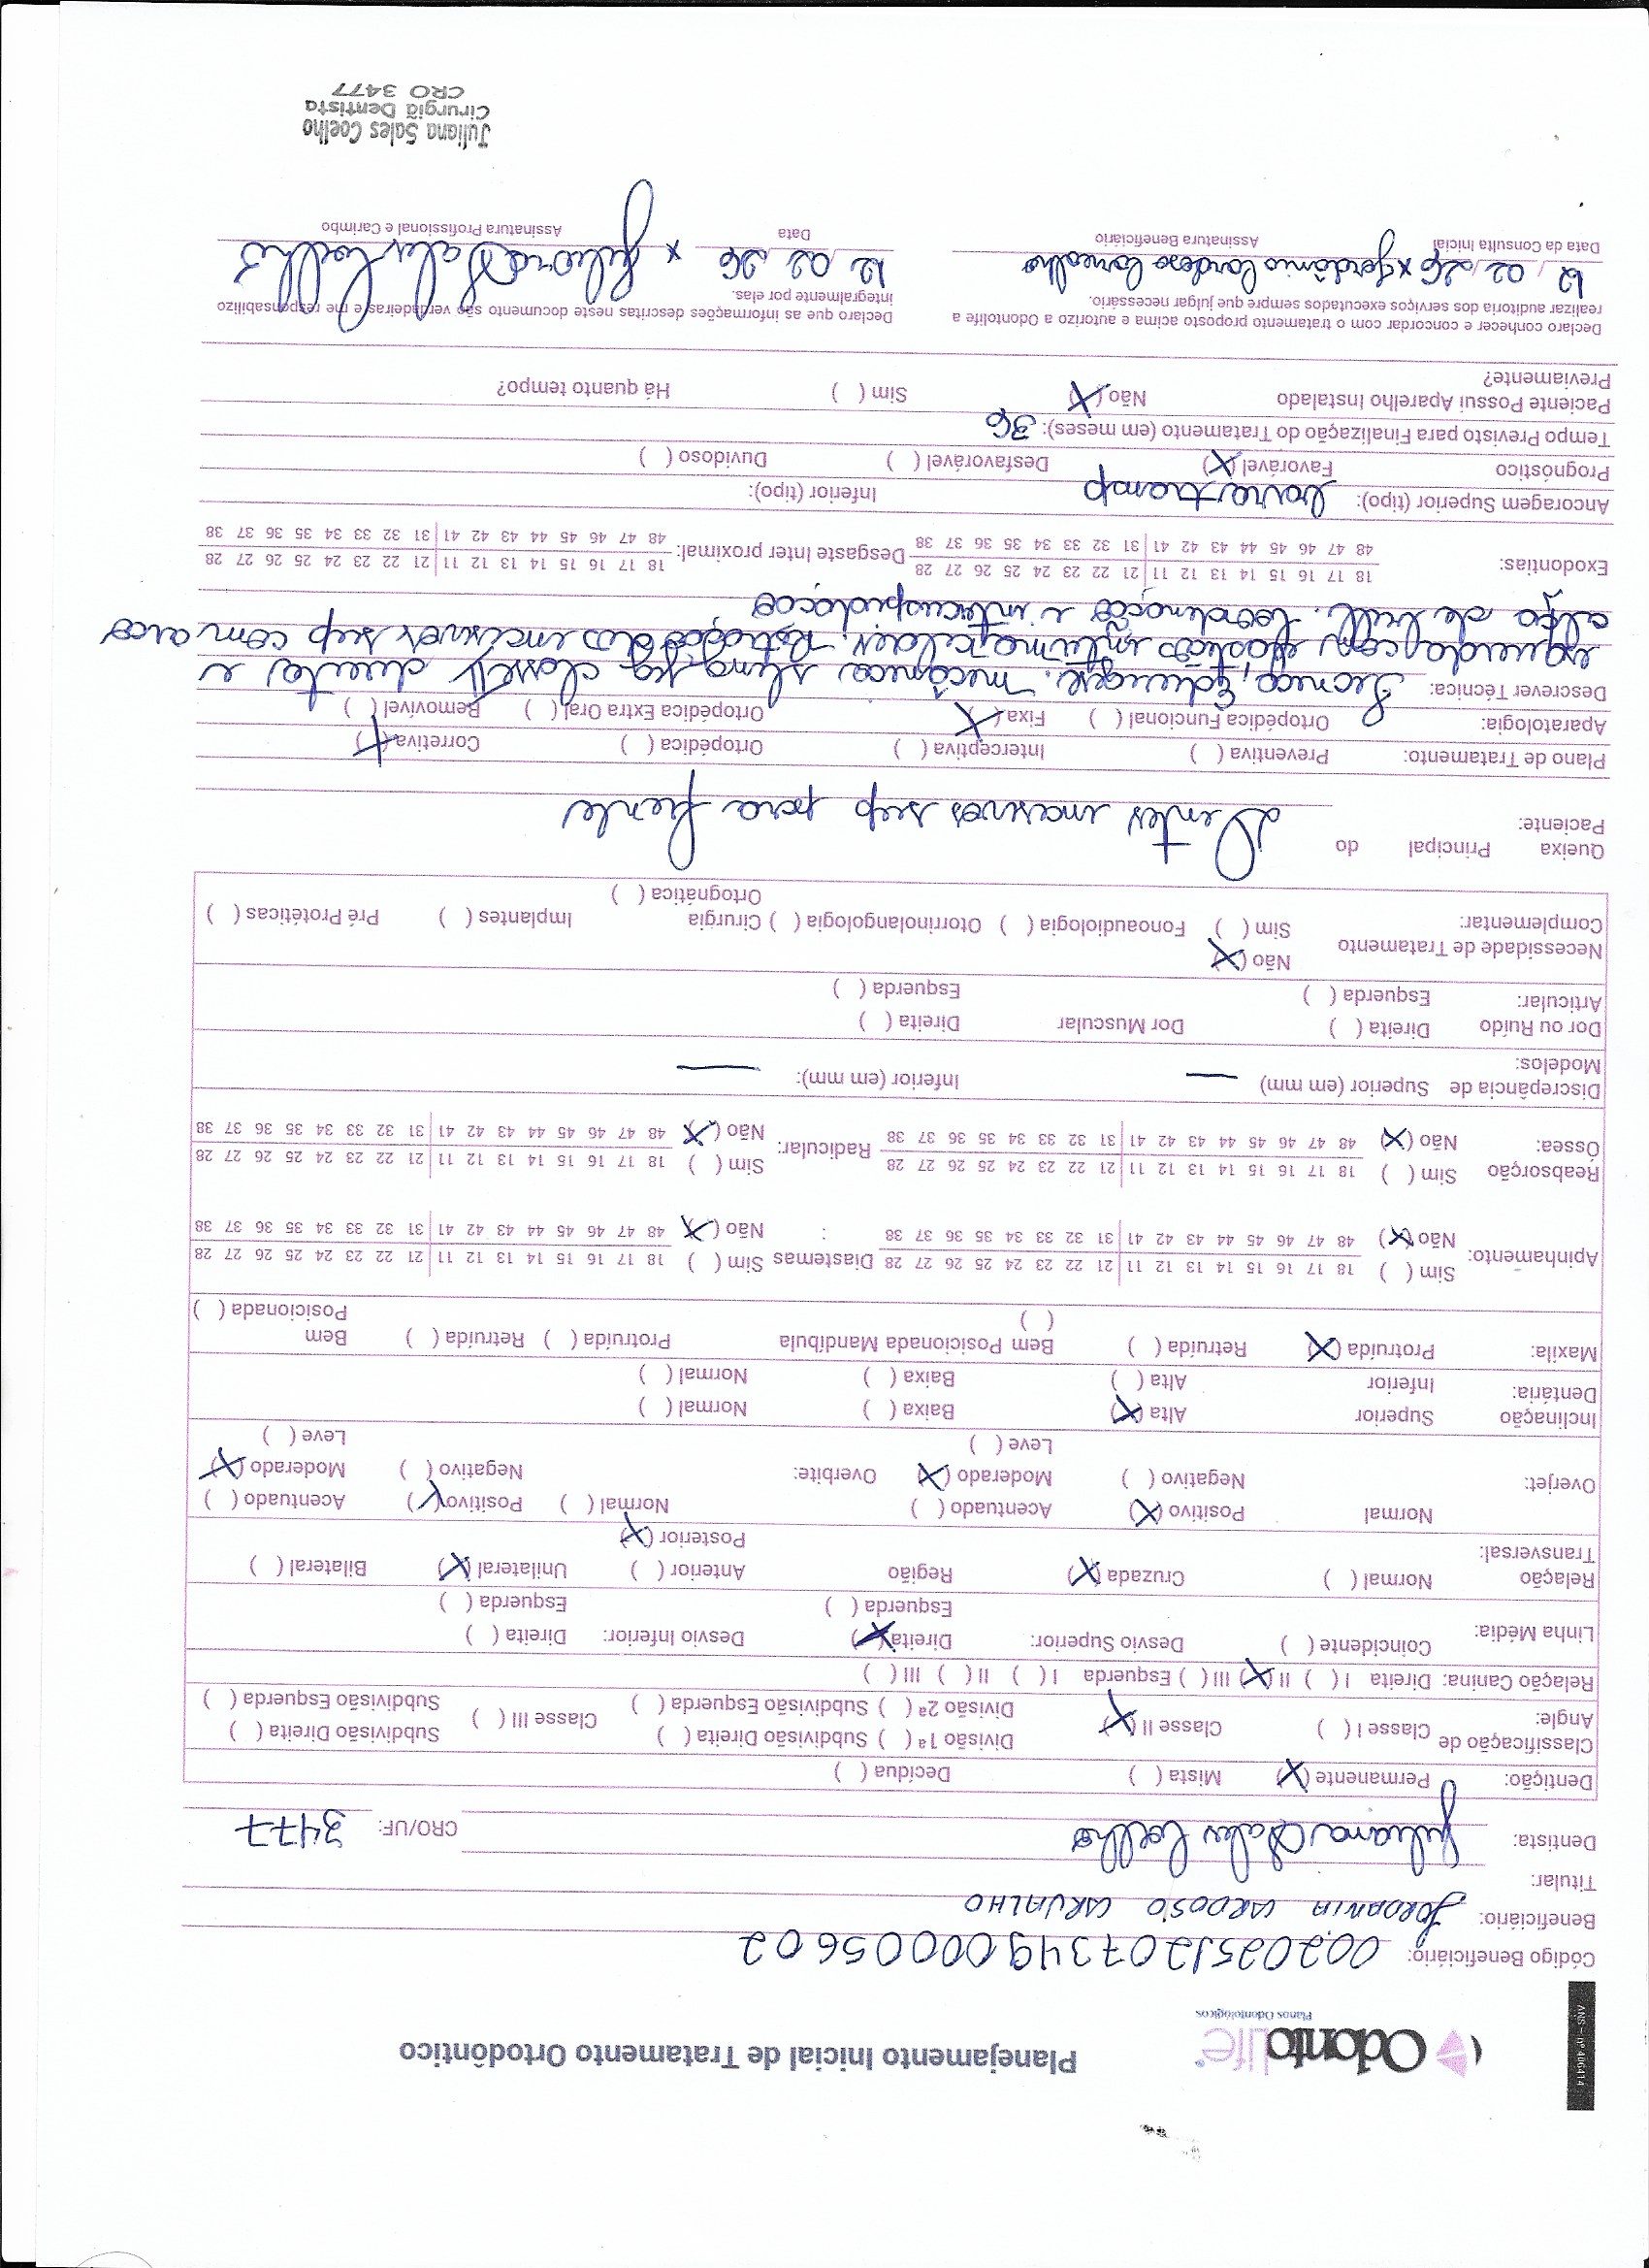 ANS - nº 406414
OdontoLife
Planos Odontológicos
Planejamento Inicial de Tratamento Ortodôntico
Código Beneficiário: 002025120734900005602
Beneficiário: JORDANIA CARDOSO CARVALHO
Titular:
Dentista: Juliana Sales Coelho CRO/UF: 3477
Dentição: Permanente (X) Mista ( ) Decídua ( )
Classificação de Angle: Classe I ( ) Classe II (X) Divisão 1ª ( ) Subdivisão Direita ( ) Classe III ( ) Subdivisão Direita ( )
Divisão 2ª ( ) Subdivisão Esquerda ( ) Subdivisão Esquerda ( )
Relação Canina: Direita I ( ) II (X) III ( ) Esquerda I ( ) II ( ) III ( )
Linha Média: Coincidente ( ) Desvio Superior: Direita (X) Desvio Inferior: Direita ( )
Esquerda ( ) Esquerda ( )
Relação Transversal: Normal ( ) Cruzada (X) Região Anterior ( ) Unilateral (X) Bilateral ( )
Posterior (X)
Overjet: Normal Positivo (X) Acentuado ( ) Overbite: Normal ( ) Positivo (X) Acentuado ( )
Negativo ( ) Moderado (X) Negativo ( ) Moderado (X)
Leve ( ) Leve ( )
Inclinação Dentária: Superior Alta (X) Baixa ( ) Normal ( )
Inferior Alta ( ) Baixa ( ) Normal ( )
Maxila: Protruída (X) Retruída ( ) Bem Posicionada ( ) Mandíbula Protruída ( ) Retruída ( ) Bem Posicionada ( )
Apinhamento: Sim ( ) 18 17 16 15 14 13 12 11 21 22 23 24 25 26 27 28 Diastemas Sim ( ) 18 17 16 15 14 13 12 11 21 22 23 24 25 26 27 28
Não (X) 48 47 46 45 44 43 42 41 31 32 33 34 35 36 37 38 : Não (X) 48 47 46 45 44 43 42 41 31 32 33 34 35 36 37 38
Reabsorção Óssea: Sim ( ) 18 17 16 15 14 13 12 11 21 22 23 24 25 26 27 28 Radicular: Sim ( ) 18 17 16 15 14 13 12 11 21 22 23 24 25 26 27 28
Não (X) 48 47 46 45 44 43 42 41 31 32 33 34 35 36 37 38 Não (X) 48 47 46 45 44 43 42 41 31 32 33 34 35 36 37 38
Discrepância de Modelos: Superior (em mm) — Inferior (em mm): —
Dor ou Ruído Articular: Direita ( ) Dor Muscular Direita ( )
Esquerda ( ) Esquerda ( )
Necessidade de Tratamento Complementar: Não (X)
Sim ( ) Fonoaudiologia ( ) Otorrinolangologia ( ) Cirurgia Ortognática ( ) Implantes ( ) Pré Protéticas ( )
Queixa Principal do Paciente: Dentes incisivos sup para frente
Plano de Tratamento: Preventiva ( ) Interceptiva ( ) Ortopédica ( ) Corretiva (X)
Aparatologia: Ortopédica Funcional ( ) Fixa (X) Ortopédica Extra Oral ( ) Removível ( )
Descrever Técnica: Tecnica Edgewise. mecânica classe II direita e
esquerda com elástico intermaxilar. Retração dos incisivos sup com arco
alça de bull. Coordenação e intercuspidação
Exodontias: 18 17 16 15 14 13 12 11 21 22 23 24 25 26 27 28 Desgaste Inter proximal: 18 17 16 15 14 13 12 11 21 22 23 24 25 26 27 28
48 47 46 45 44 43 42 41 31 32 33 34 35 36 37 38 48 47 46 45 44 43 42 41 31 32 33 34 35 36 37 38
Ancoragem Superior (tipo): barra transp Inferior (tipo):
Prognóstico Favorável (X) Desfavorável ( ) Duvidoso ( )
Tempo Previsto para Finalização do Tratamento (em meses): 36
Paciente Possui Aparelho Instalado Previamente? Não (X) Sim ( ) Há quanto tempo?
Declaro conhecer e concordar com o tratamento proposto acima e autorizo a Odontolife a
realizar auditoria dos serviços executados sempre que julgar necessário.
Declaro que as informações descritas neste documento são verdadeiras e me responsabilizo
integralmente por elas.
12/02/26 x Jordânia Cardoso Carvalho 12/02/26 x Juliana Sales Coelho
Data da Consulta Inicial Assinatura Beneficiário Data Assinatura Profissional e Carimbo
Juliana Sales Coelho
Cirurgiã Dentista
CRO 3477